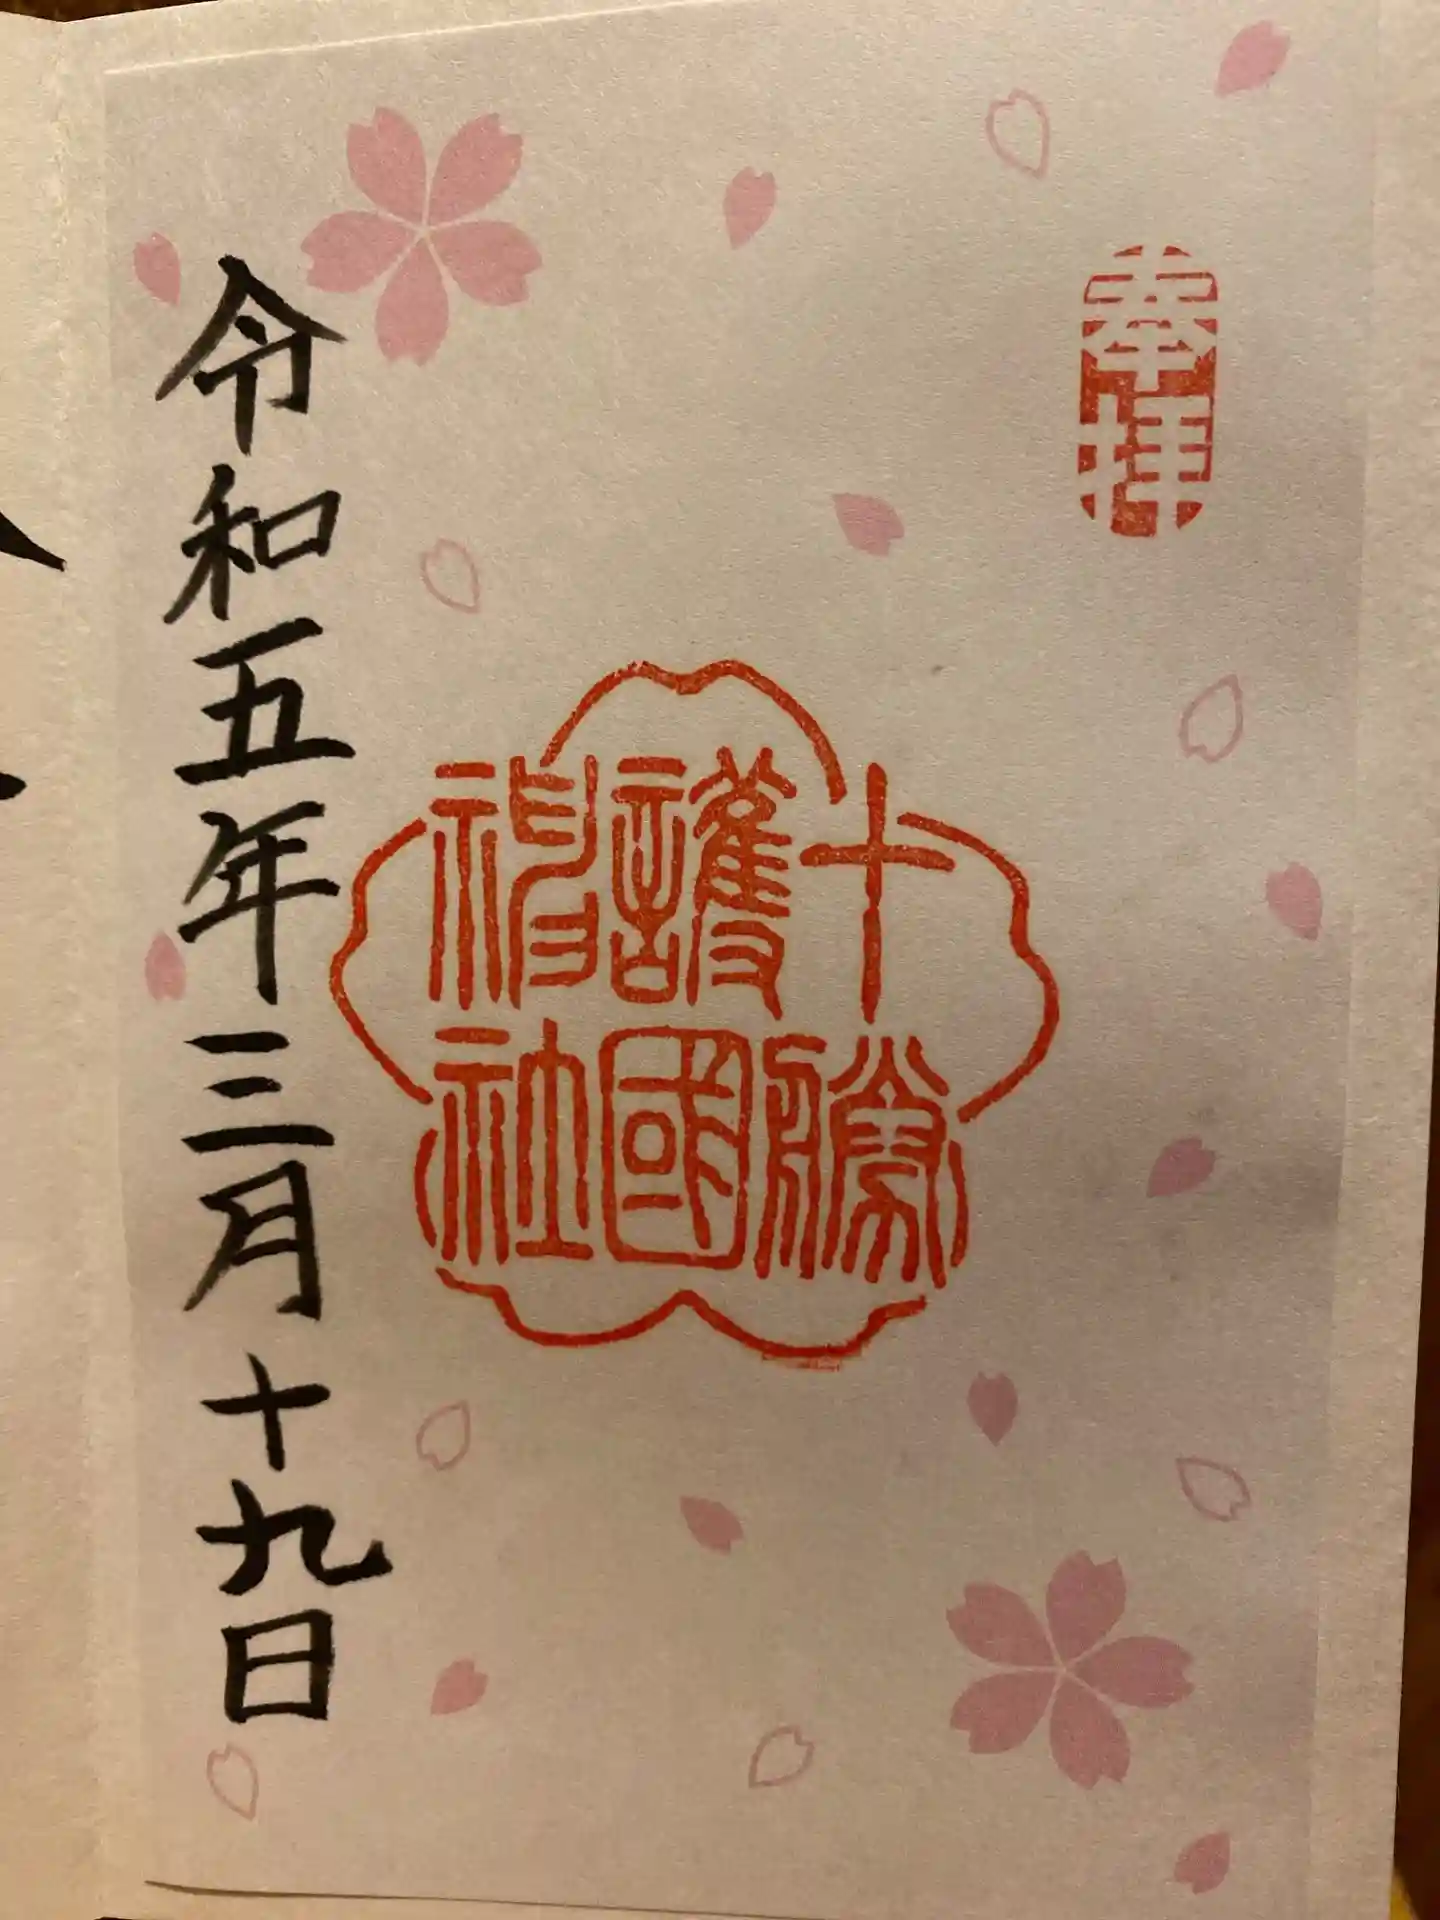 奉拝
十勝
護國
神社
令和五年三月十九日